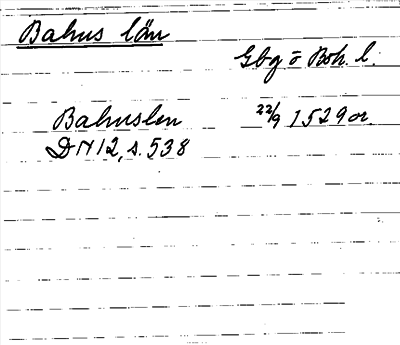 Bahus län
Gbg o Boh. l.
Bahuslen 22/9 1529 or.
DN 12, s. 538